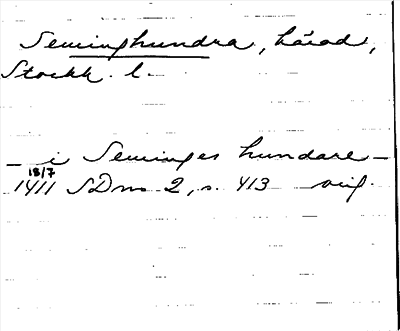 Seminghundra, härad,
Stockh. l.
– i Seminges hundare –
18/7
1411 SDns 2, s. 413 orig.